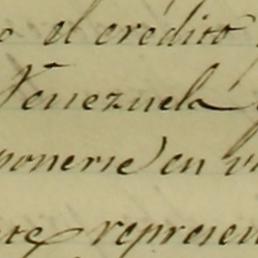 el credito
Venezuela
ponerse en
te represen